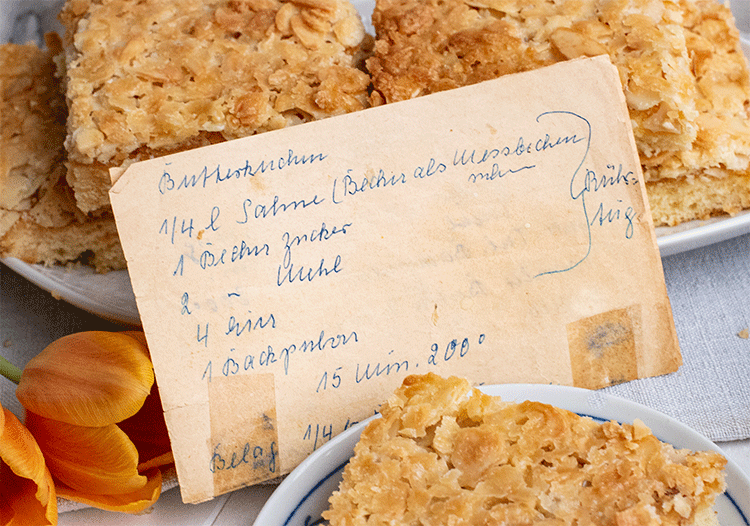 Butterkuchen
1/4 l Sahne (Becher als Messbecher
nehmen
1 Becher Zucker
2 " Mehl
4 Eier
1 Backpulver
Rühr-
teig
15 Min. 200°
1/4
Belag